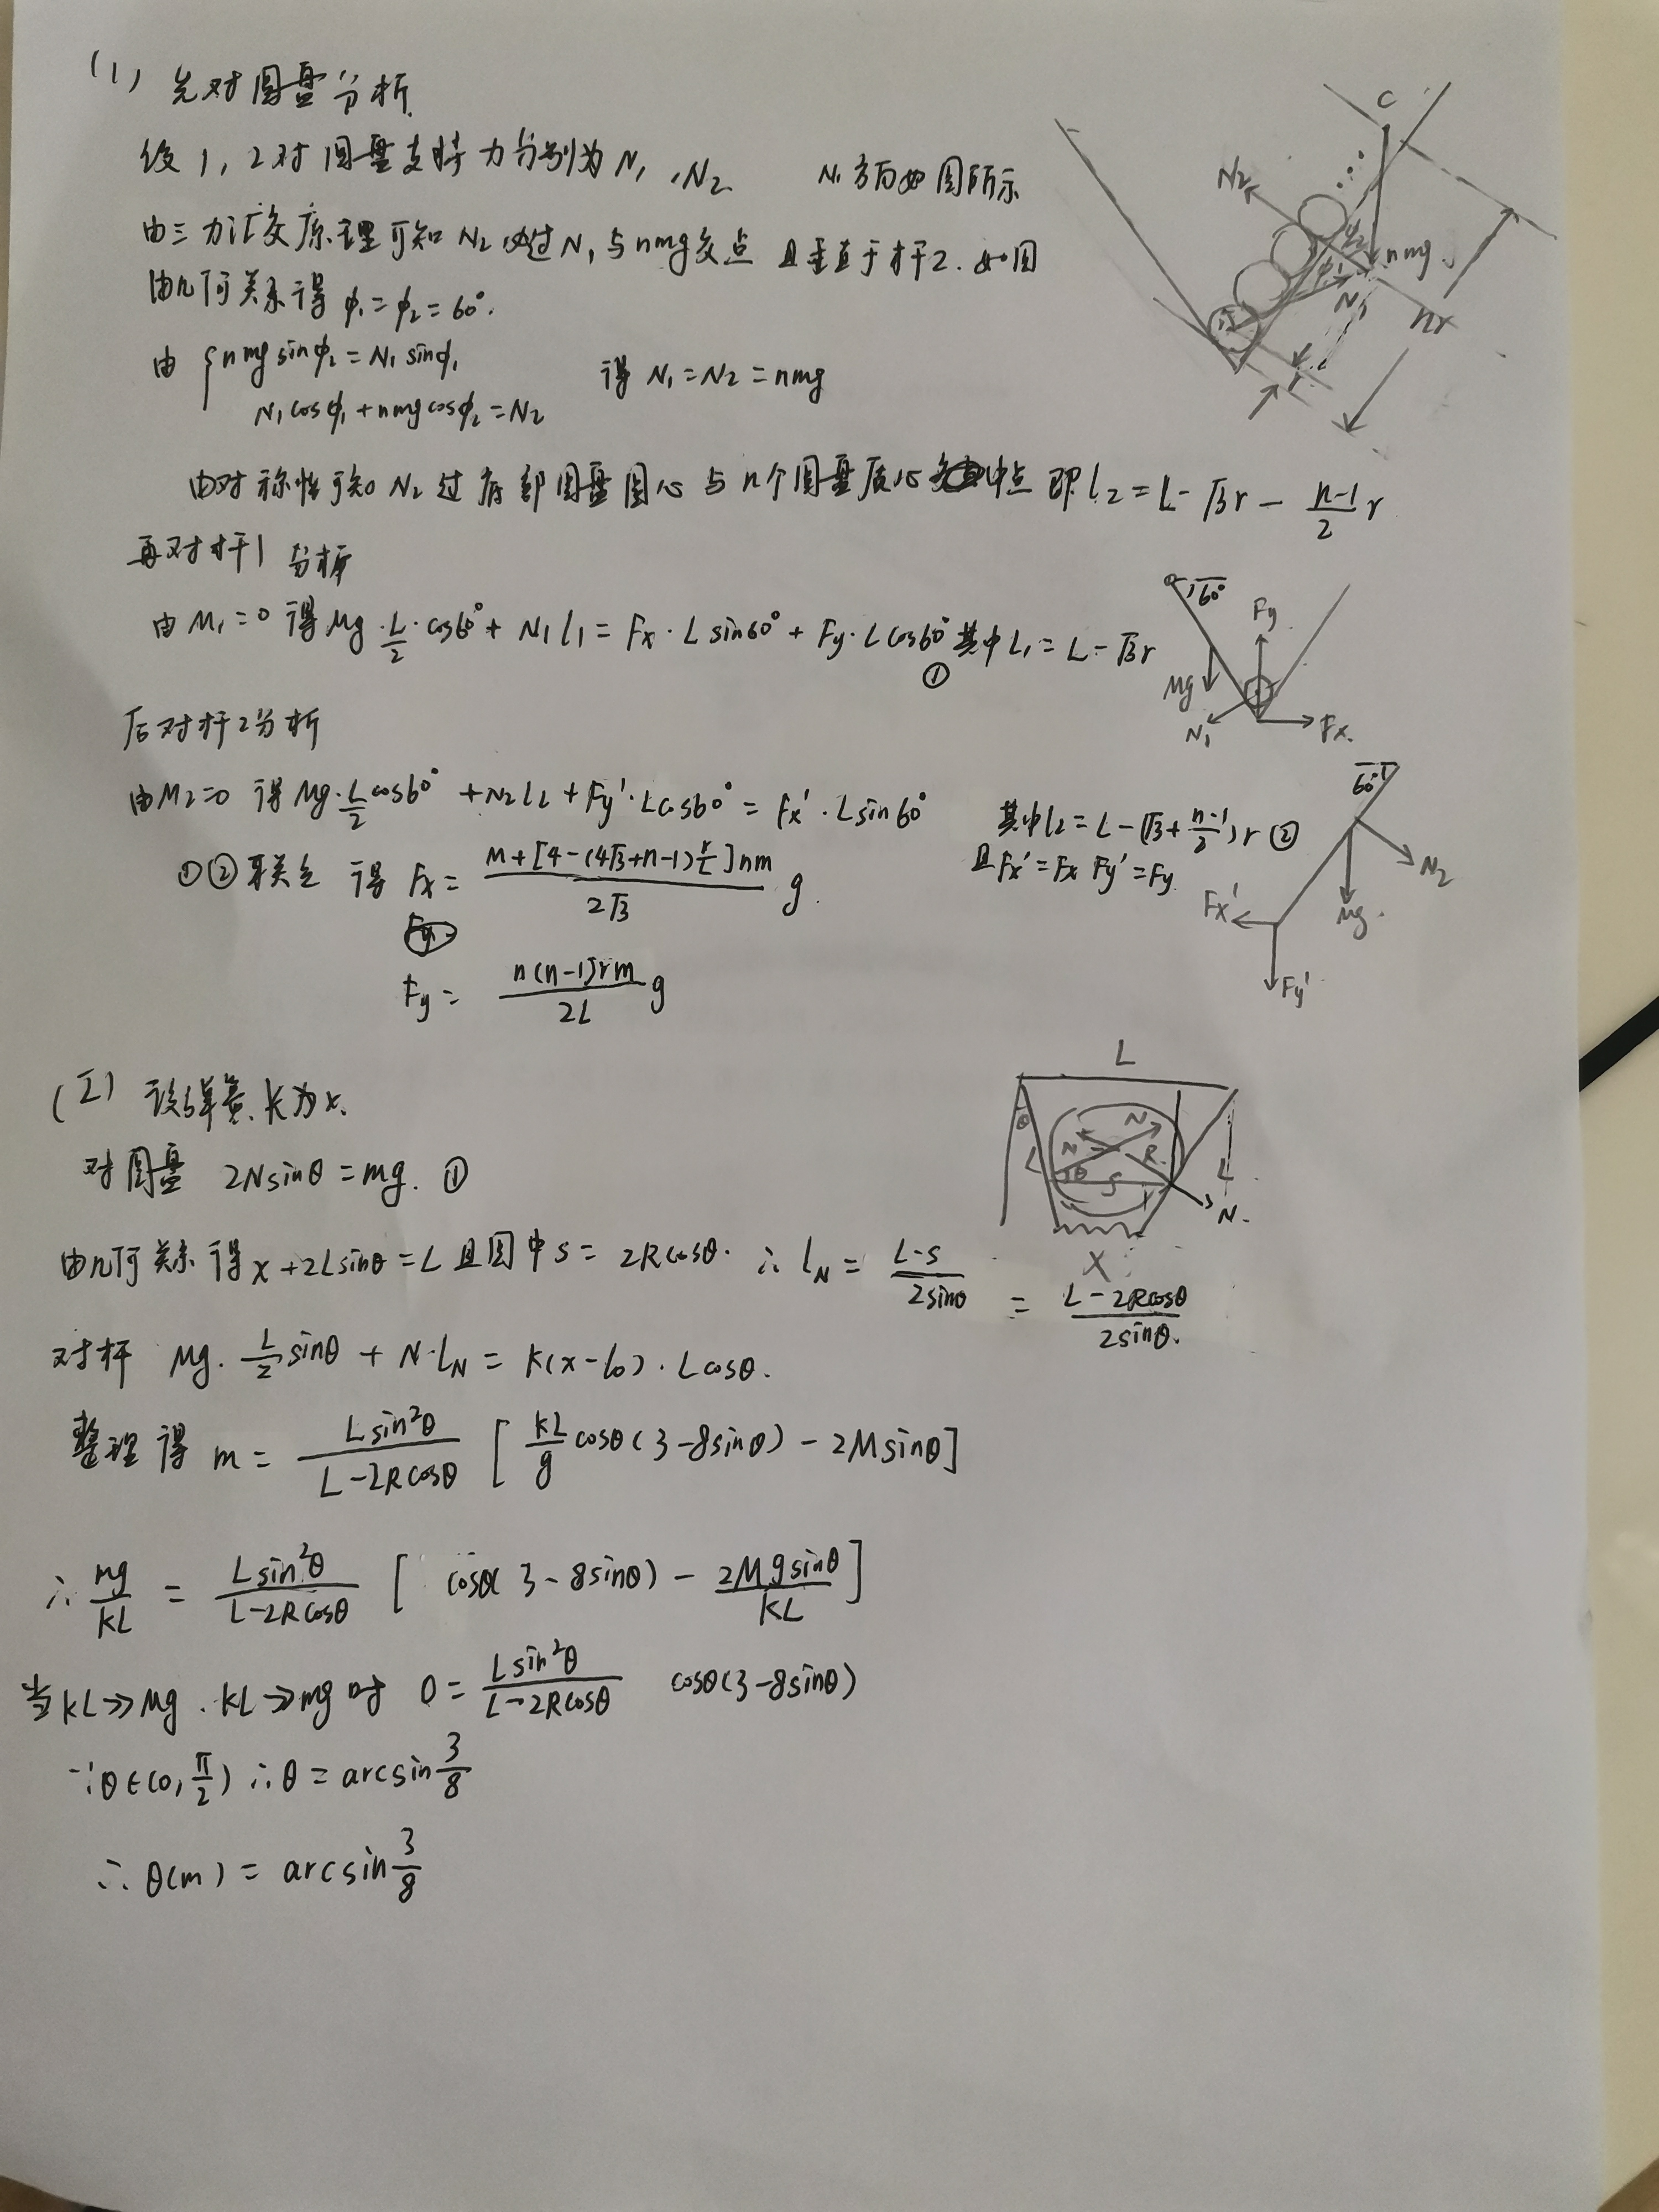 (1) 先对圆盘分析.
设1,2对圆盘支持力分别为N₁,N₂ N₁方向如图所示
由三力汇交原理可知N₂必过N₁与nmg交点 且垂直于杆2.如图
由几何关系得 φ₁=φ₂=60°.
由 { nmg sinφ₂=N₁ sinφ₁ 得 N₁=N₂=nmg
N₁cosφ₁+nmgcosφ₂=N₂
由对称性可知N₂过底部圆盘圆心与n个圆盘质心中点 即l₂=L-√3r-(n-1)/2 r
再对杆1分析
由M₁=0 得Mg·L/2·cos60°+N₁l₁=Fx·Lsin60°+Fy·Lcos60° 其中l₁=L-√3r
①
后对杆2分析
由M₂=0 得Mg·L/2cos60°+N₂l₂+Fy'·Lcos60°=Fx'·Lsin60° 其中l₂=L-(√3+(n-1)/2)r ②
且Fx'=Fx Fy'=Fy
①②联立 得 Fx=(M+[4-(4√3+n-1)r/L]nm)/(2√3) g.
Fy=(n(n-1)rm)/(2L) g
C
N₂
φ₂
φ₁
nmg
N₁
nr
r
60°
Fy
Mg
N₁
Fx
60°
N₂
Mg
Fx'
Fy'
(2) 设弹簧长为x.
对圆盘 2Nsinθ=mg. ①
由几何关系得x+2Lsinθ=L且图中s=2Rcosθ. ∴ l_N=(L-s)/(2sinθ) =(L-2Rcosθ)/(2sinθ).
对杆 Mg·L/2sinθ+N·l_N=k(x-l₀)·Lcosθ.
整理得 m=(Lsin²θ)/(L-2Rcosθ) [kL/g cosθ(3-8sinθ)-2Msinθ]
∴ mg/kL=(Lsin²θ)/(L-2Rcosθ) [cosθ(3-8sinθ)-(2Mgsinθ)/kL]
当kL≫Mg.kL≫mg时 0=(Lsin²θ)/(L-2Rcosθ) cosθ(3-8sinθ)
∵θ∈(0,π/2) ∴θ=arcsin3/8
∴θ(m)=arcsin3/8
L
θ
N
N
R
L
θ
S
L
N
X